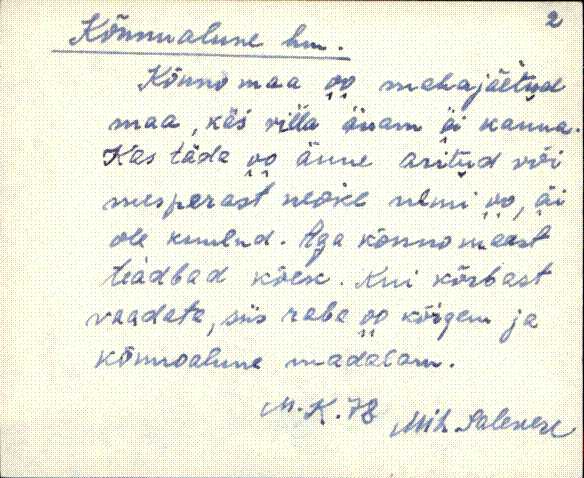 2
Kõnnualune hm.
Kõnno maa oo mahajäetud
maa, käs villa änam äi kanna.
Kas täda oo änne aritud või
mesperast neoke nemi oo, äi
ole kuulud. Aga kõnnomaast
teädbad kõek. Kui kõrbast
vaadata, siis raba oo kõrgem ja
kõnnoalune madalam.
M.K. 78 Mih.